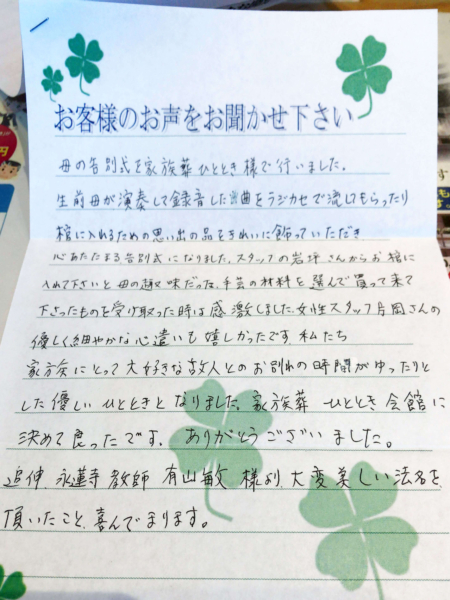 お客様のお声をお聞かせ下さい
母の告別式を家族葬ひととき様で行いました。
生前母が演奏して録音した曲をラジカセで流してもらったり
棺に入れるための思い出の品をきれいに飾っていただき
心あたたまる告別式になりました。スタッフの岩坪さんからお棺に
入れて下さいと母の趣味だった、手芸の材料を選んで買って来て
下さったものを受け取った時は感激しました。女性スタッフ片岡さんの
優しく細やかな心遣いも嬉しかったです 私たち
家族にとって大好きな故人とのお別れの時間がゆったりと
した優しいひとときとなりました。家族葬ひととき会館に
決めて良ったです。ありがとうございました。
追伸 永蓮寺教師 有山敏文様より、大変美しい法名を
頂いたこと、喜んでまります。